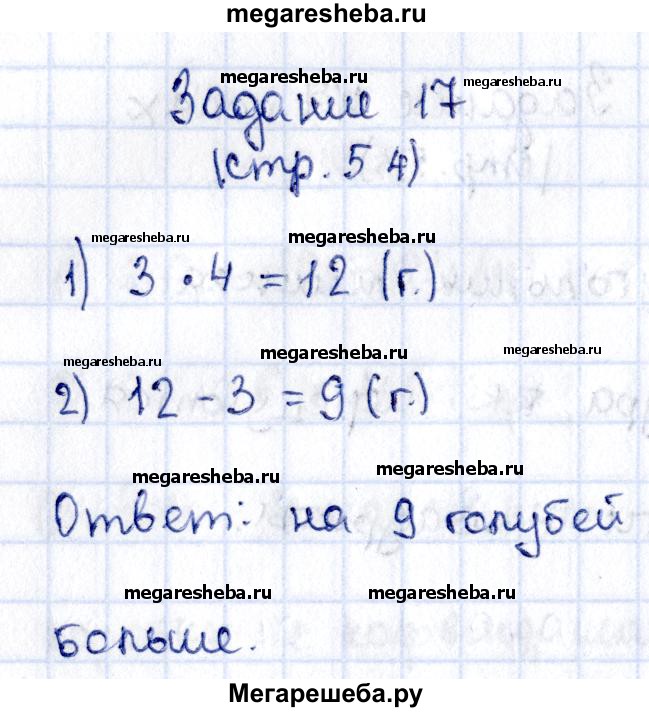 megaresheba.ru
megaresheba.ru megaresheba.ru
Задание 17
(стр. 54)
megaresheba.ru megaresheba.ru
1) 3 · 4 = 12 (г.)
megaresheba.ru megaresheba.ru megaresheba.ru
2) 12 - 3 = 9 (г.)
megaresheba.ru megaresheba.ru
Ответ: на 9 голубей
megaresheba.ru megaresheba.ru
больше.
Мегарешеба.ру